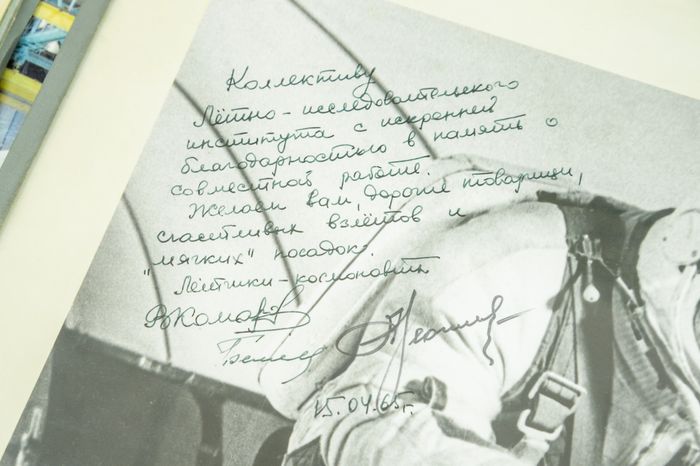 Коллективу
Лётно-исследовательского
института с искренней
благодарностью в память о
совместной работе.
Желаем вам, дорогие товарищи,
счастливых взлётов и
"мягких" посадок.
Лётчики-космонавты
ВКомаров
Беляев АЛеонов
15.04.65г.